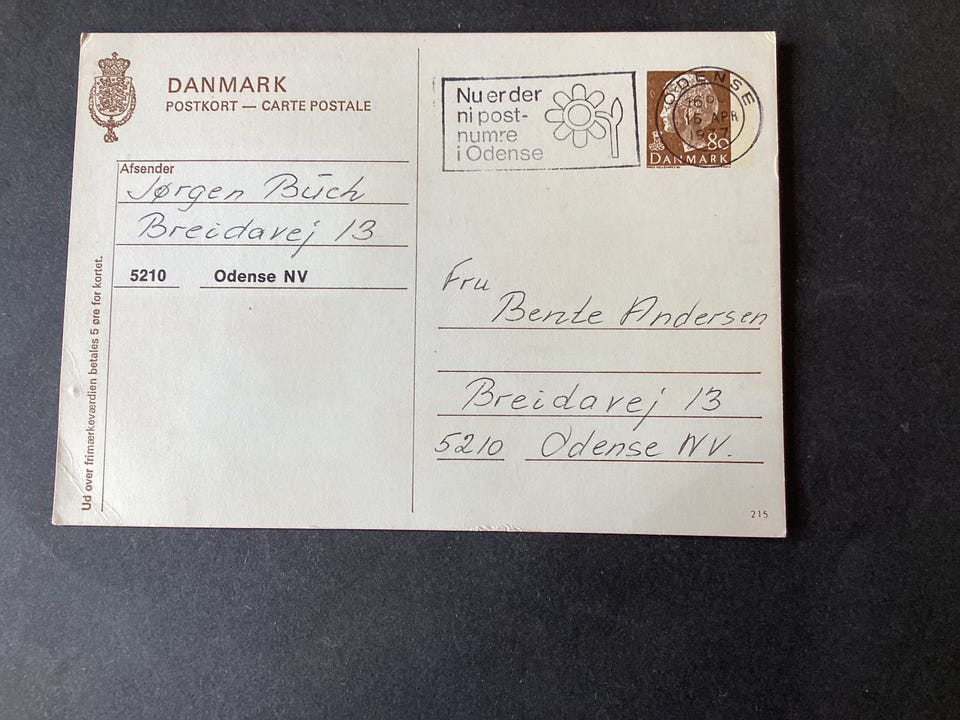 DANMARK
POSTKORT — CARTE POSTALE
Afsender
Jørgen Buch
Breidavej 13
5210 Odense NV
Ud over frimærkeværdien betales 5 øre for kortet.
Nu er der
ni post-
numre
i Odense
ODENSE
16
15 APR
1977
80
DANMARK
Fru
Bente Andersen
Breidavej 13
5210 Odense NV.
215